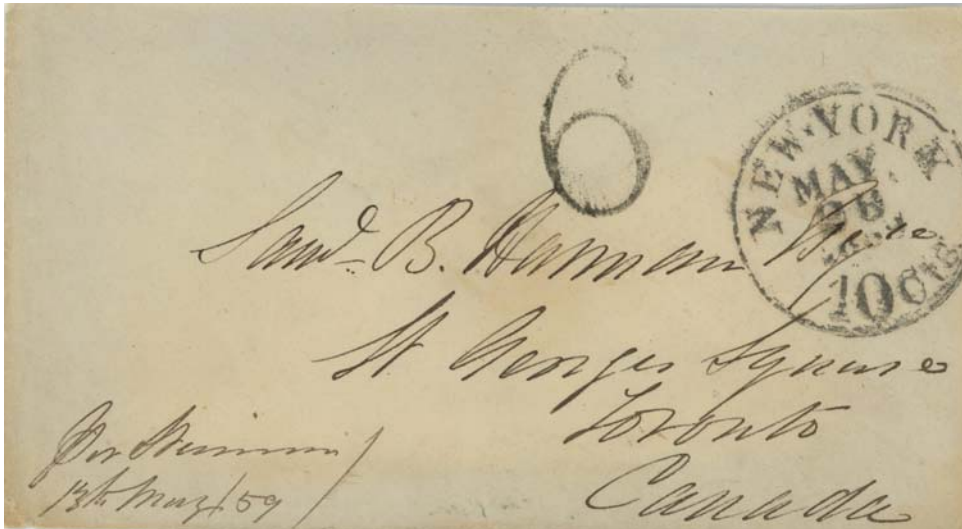 6
NEW·YORK
MAY
28
10 Cts
Saml. B. Harman Esqre
St Georges Square
Toronto
Canada
Per Steamer
13th May/59